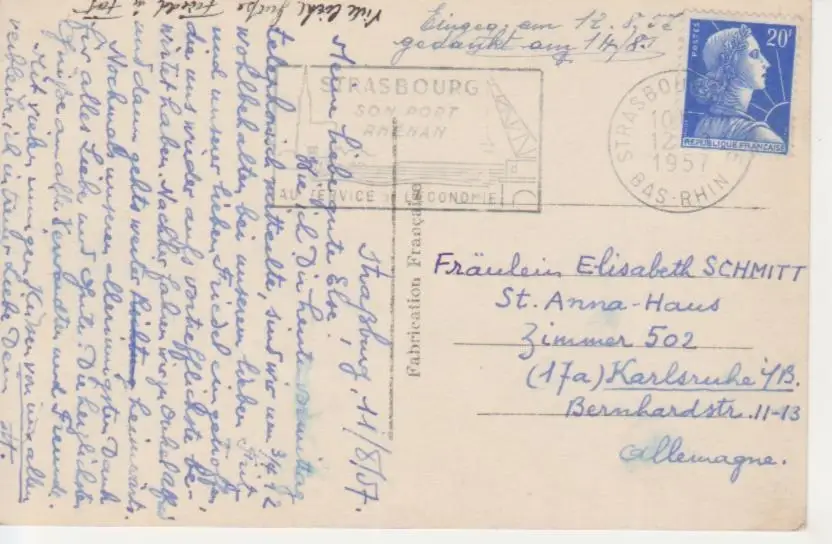 Viele liebe Grüße Friedel u.
Eingeg. am 12.8.57
gedankt am 14/8.57
POSTES
20F
REPUBLIQUE FRANÇAISE
STRASBOURG
12
1957
BAS-RHIN
STRASBOURG
SON PORT
RHENAN
AU SERVICE DE L'ECONOMIE
Fabrication Française
Fräulein Elisabeth SCHMITT
St. Anna-Haus
Zimmer 502
(17a) Karlsruhe i/B.
Bernhardstr. 11-13
Allemagne.
Straßburg, 11/8/57.
Meine liebe, gute Else,
Wie ich Dir heute vormittag
telephonisch mitteilte, sind wir um 3/4 12
wohlbehalten bei unserem lieben
und unserer lieben Friedel eingetroffen,
die uns wieder aufs vortrefflichste be-
wirtet haben. Nachher fahren wir zu Onkel
und dann gehts weiter heimwärts.
Nochmals unseren allerinnigsten Dank
für alles Liebe und Gute. Die herzlichsten
Grüße an alle Verwandten und Freunde.
Mit vielen innigen Küssen von uns allen
verbleib ich in treuer Liebe Dein